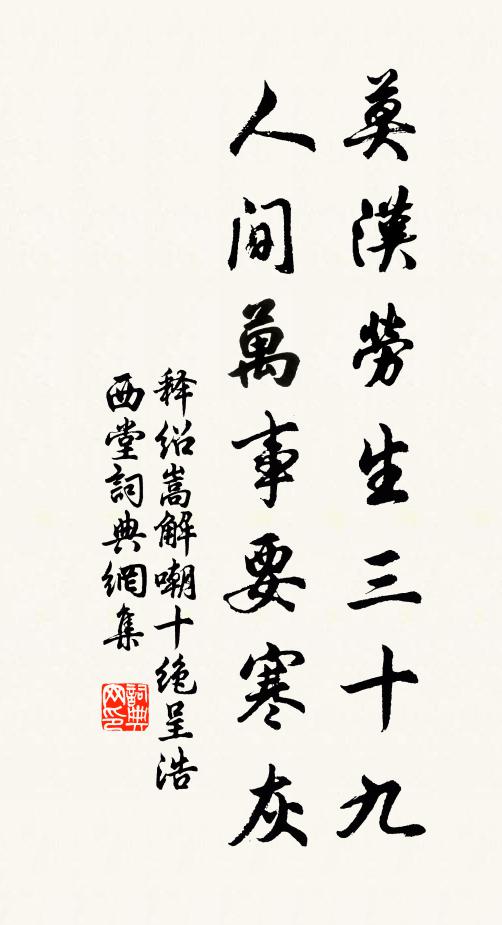 莫漢勞生三十九
人间萬事要寒灰
释绍嵩解嘲十绝呈浩
西堂詞典網集
詞典网印